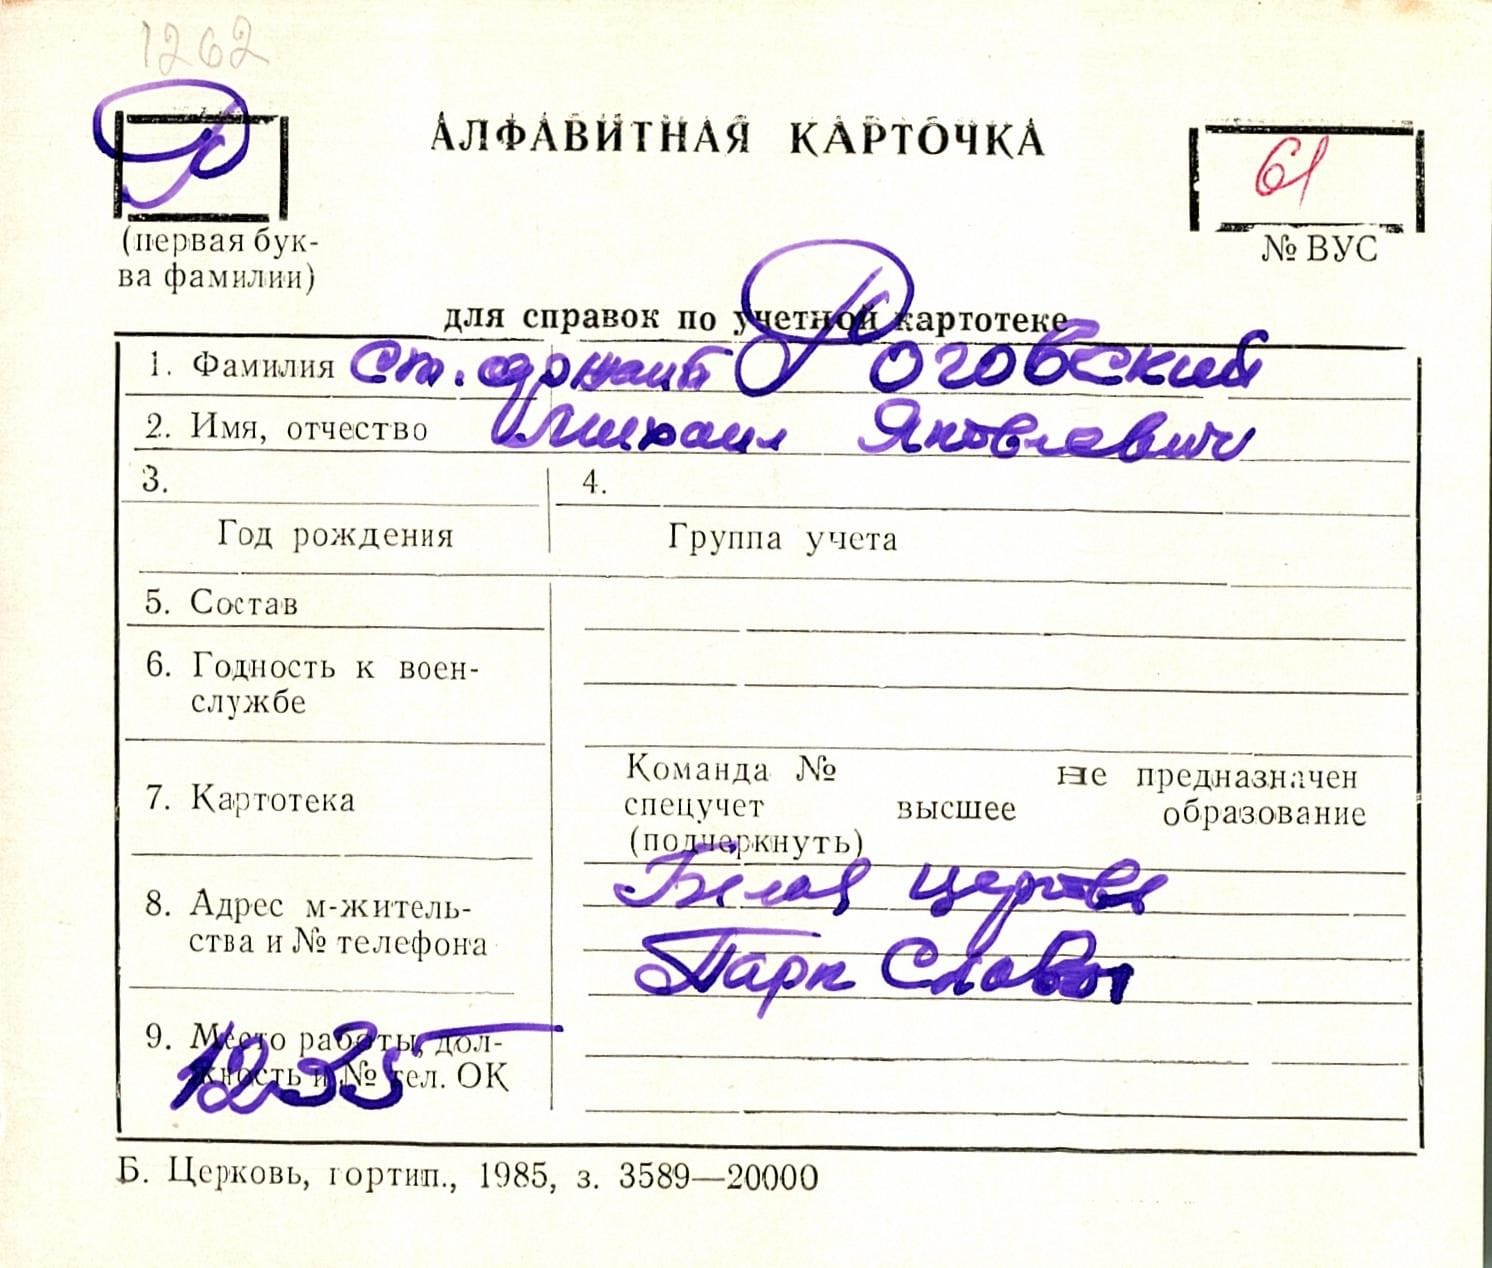 1262
Р
АЛФАВИТНАЯ КАРТОЧКА
61
(первая бук-
ва фамилии)
№ ВУС
для справок по учетной картотеке
1. Фамилия Ст. сержант Роговский
2. Имя, отчество Михаил Яковлевич
3. 4.
Год рождения Группа учета
5. Состав
6. Годность к воен-
службе
7. Картотека
Команда № не предназначен
спецучет высшее образование
(подчеркнуть)
8. Адрес м-житель-
ства и № телефона
Белая Церковь
Парк Славы
9. Место работы, дол-
жность и № тел. ОК
1235
Б. Церковь, гортип., 1985, з. 3589—20000